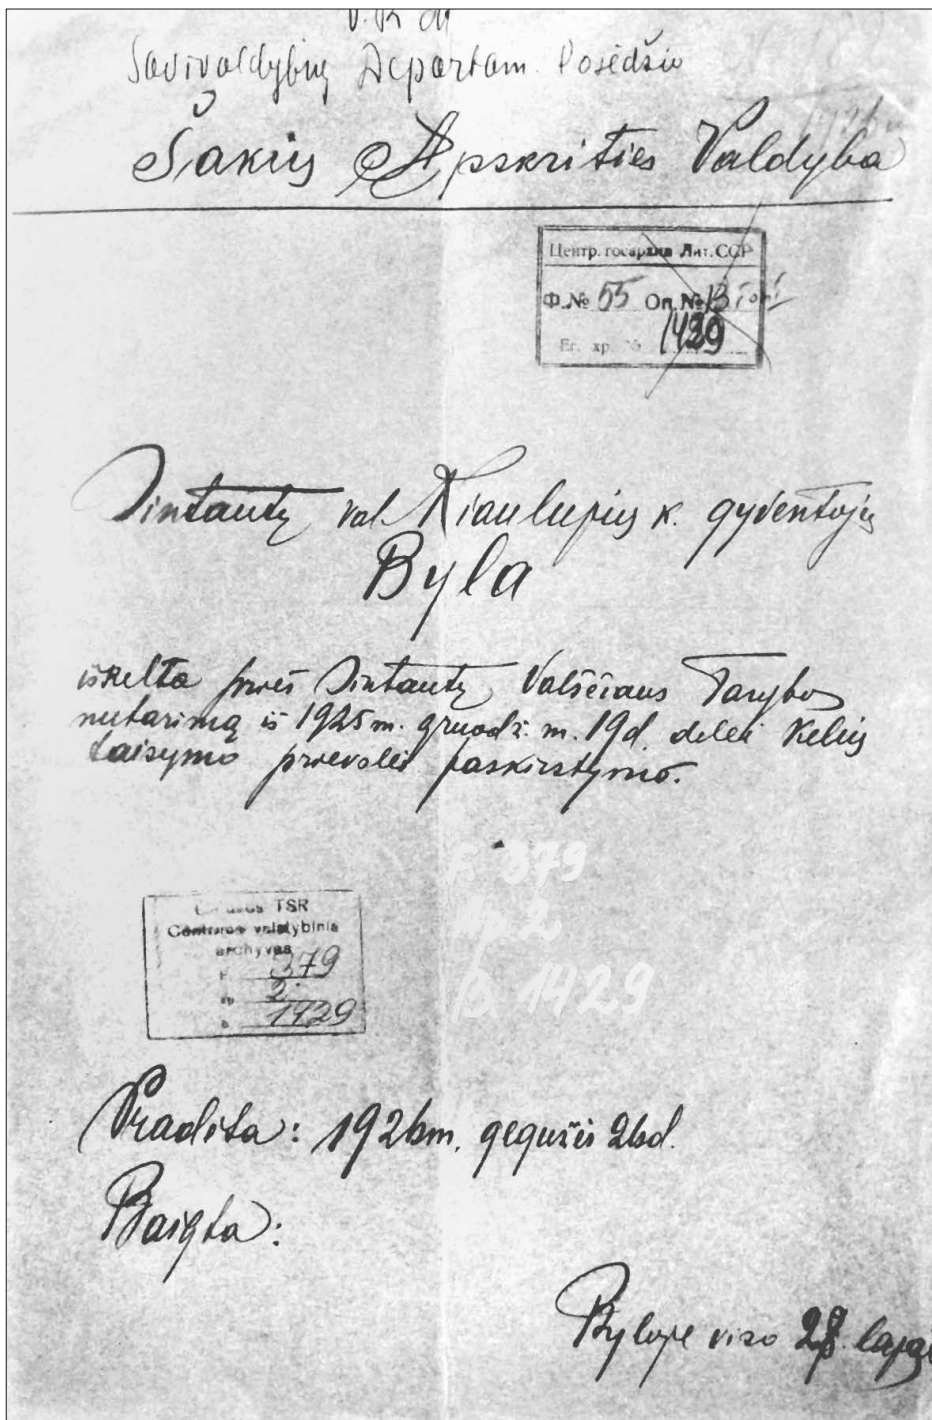 V. R. M
Savivaldybių Departam. Posėdžio
Šakių Apskrities Valdyba
Центр. госархив Лит. ССР
Ф. № 55 Оп. № 13
Ег. хр. № 1429
Sintautų val. Kiaulupių k. gyventojų
Byla
iškelta prieš Sintautų Valsčiaus Tarybos
nutarimą iš 1925 m. gruodž. m. 19 d. dėlei Kelių
taisymo prievolei paskirstymo.
F. 379
Ap. 2
b. 1429
TSR
Centrinis valstybinis
archyvas
F 379
ap 2
b 1429
Pradėta: 1926 m. gegužės 26 d.
Baigta:
Byloje viso lapai